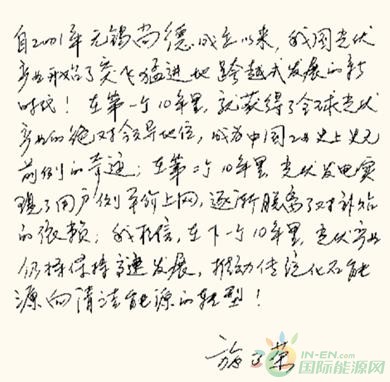 自2001年无锡尚德成立以来，我国光伏
产业开始了突飞猛进地跨越式发展的新
时代！在第一个10年里，就获得了全球光伏
产业的绝对领导地位，成为中国工业史上史无
前例的奇迹；在第二个10年里，光伏发电实
现了用户侧平价上网，逐渐脱离了对补贴
的依赖；我相信，在下一个10年里，光伏产业
仍将保持高速发展，推动传统化石能
源向清洁能源的转型！
施正荣
IN-EN.com
国际能源网